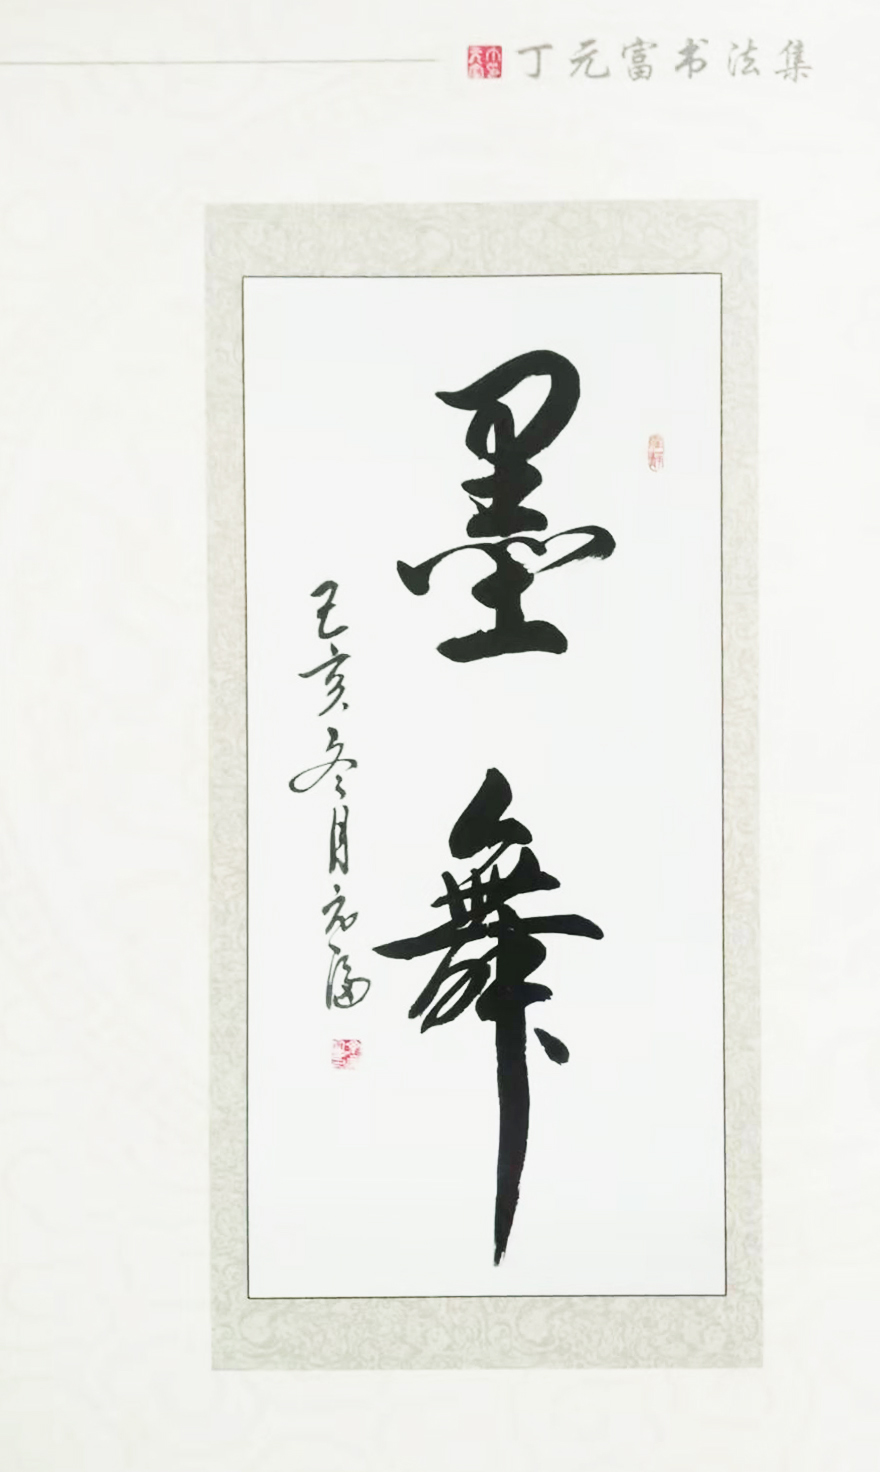 丁元富书法集
墨舞
己亥冬月元富